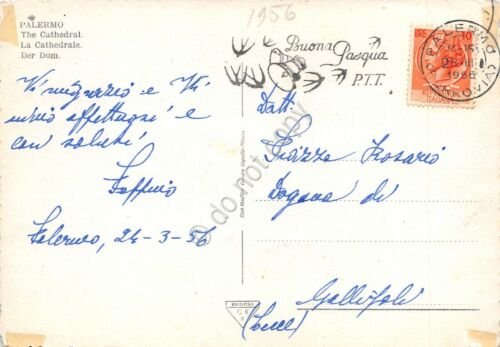 1956
PALERMO
The Cathedral.
La Cathédrale.
Der Dom.
Buona
Pasqua
P.T.T.
LIRE 10
PALERMO
1956
FERROVIA
Vi ringrazio e Vi
invio affettuosi e
cari saluti
Palermo, 24-3-56
Dott.
Piazza Rosario
Dogana di
Gallipoli
(Lecce)
do not copy
EDIZIONI